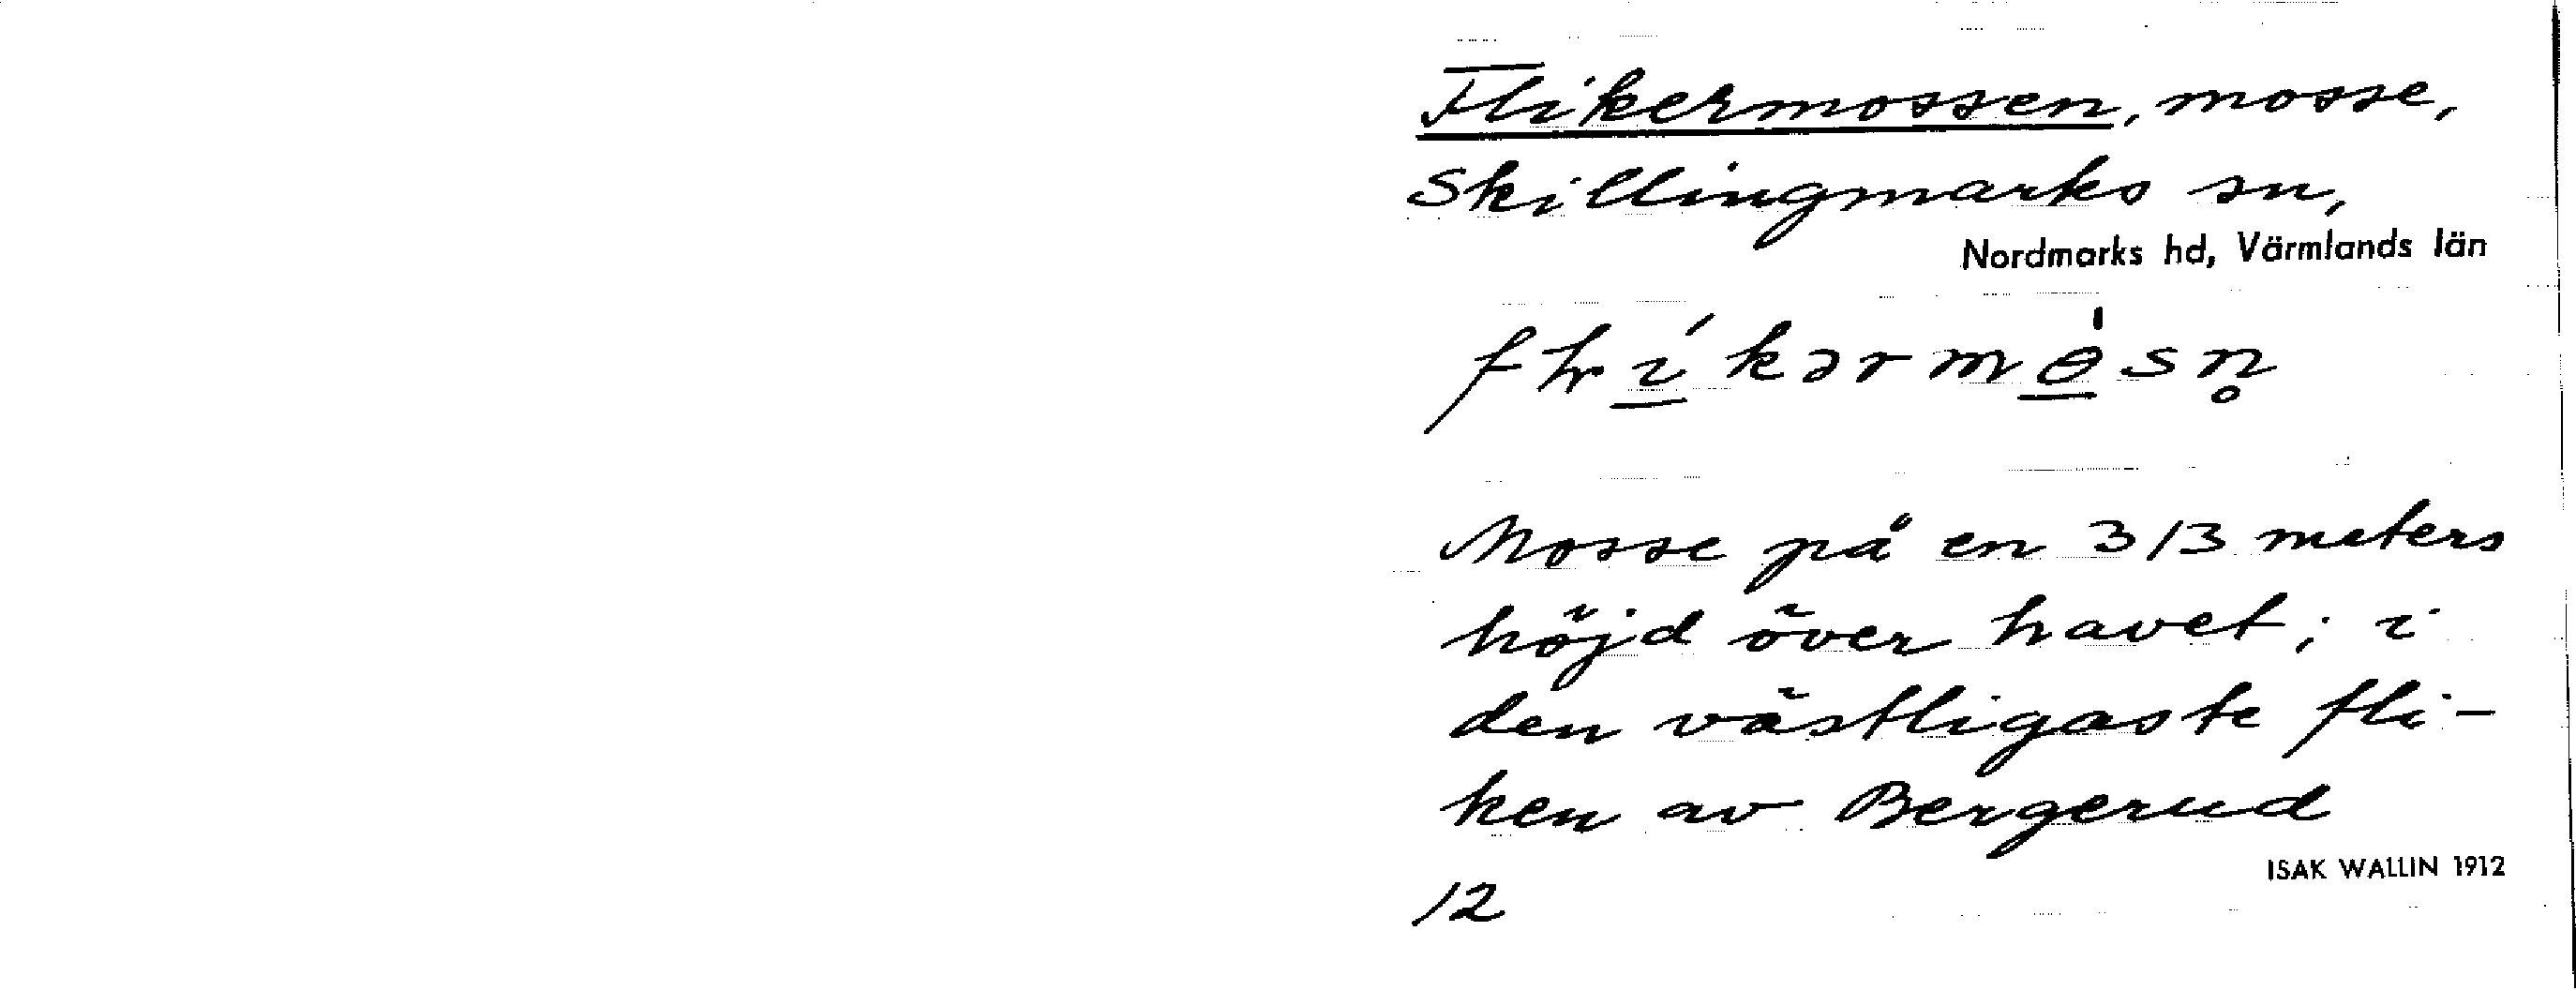 Flikermossen, mosse,
Skillingmarks sn,
Nordmarks hd, Värmlands län
Mosse på en 313 meters
höjd över havet; i
den västligaste fli-
ken av Bergerud
ISAK WALLIN 1912
12